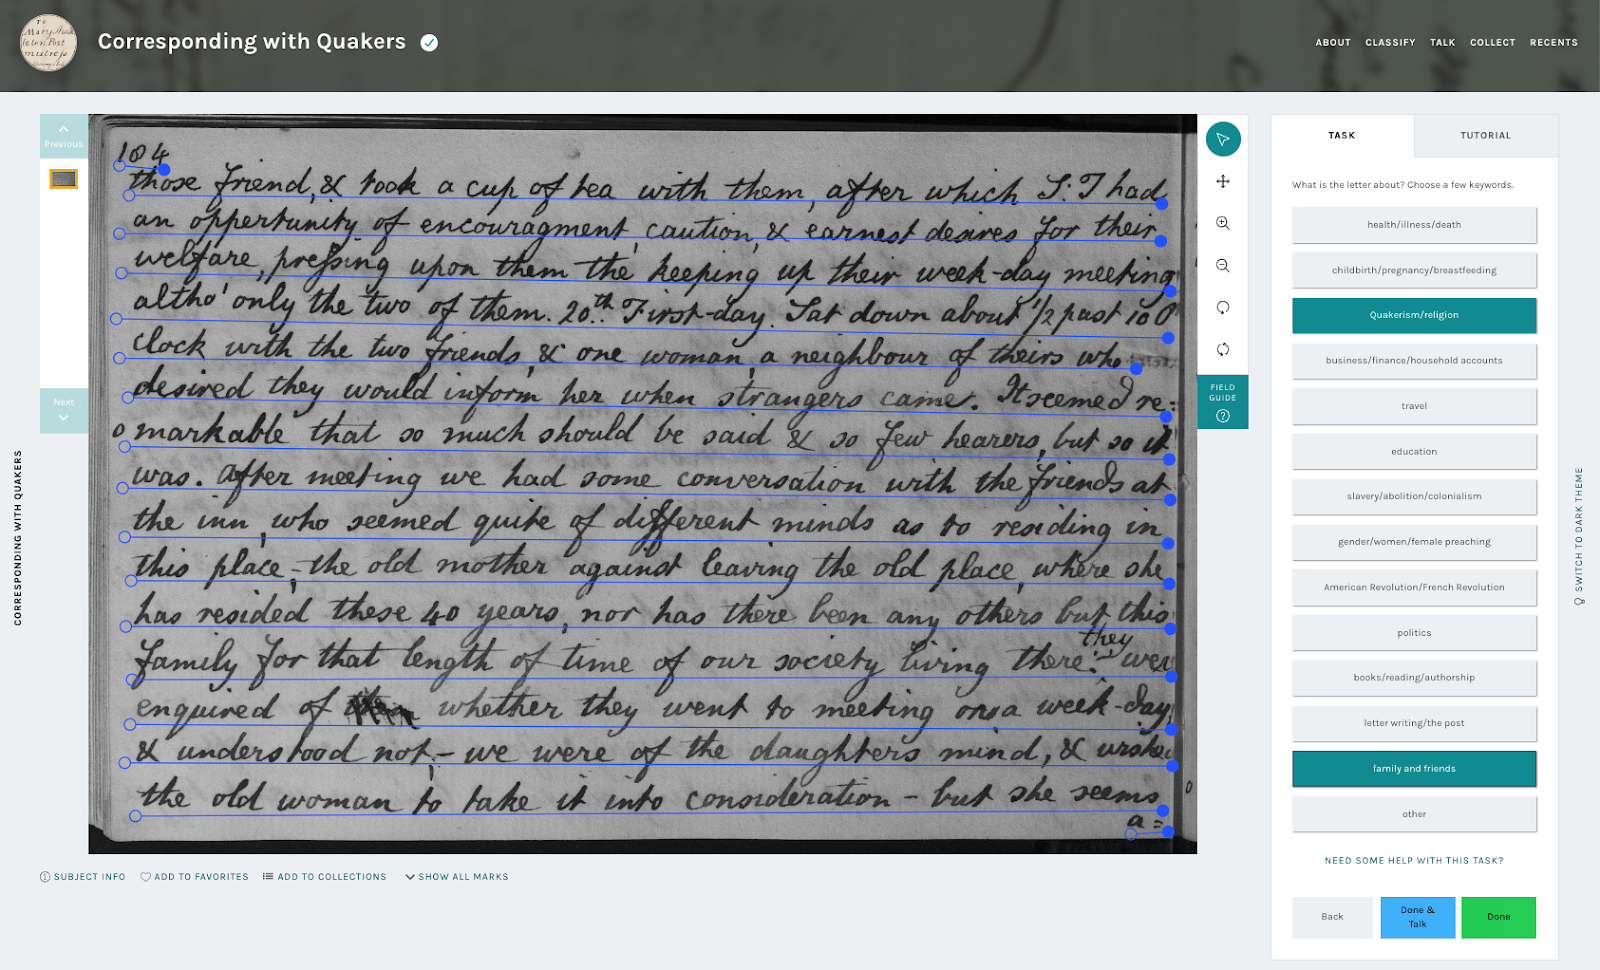 To
Mary Lead
beton Post
mistress
Corresponding with Quakers
ABOUT CLASSIFY TALK COLLECT RECENTS
Previous
Next
104
those friend, & took a cup of tea with them, after which S: T had
an oppertunity of encouragment, caution, & earnest desires for their
welfare, pressing upon them the keeping up their week-day meeting
altho' only the two of them. 20th First-day. Sat down about 1/2 past 10 O
clock with the two friends, & one woman, a neighbour of theirs who
desired they would inform her when strangers came. It seemed re:
markable that so much should be said & so few hearers, but so it
was. After meeting we had some conversation with the friends at
the inn, who seemed quite of different minds as to residing in
this place, the old mother against leaving the old place, where she
has resided these 40 years, nor has there been any others but this
family for that length of time of our society living there. they were
enquired of whether they went to meeting on a week-day,
& understood not - we were of the daughters mind, & wished
the old woman to take it into consideration - but she seems
a =
FIELD GUIDE
TASK
TUTORIAL
What is the letter about? Choose a few keywords.
health/illness/death
childbirth/pregnancy/breastfeeding
Quakerism/religion
business/finance/household accounts
travel
education
slavery/abolition/colonialism
gender/women/female preaching
American Revolution/French Revolution
politics
books/reading/authorship
letter writing/the post
family and friends
other
NEED SOME HELP WITH THIS TASK?
Back
Done & Talk
Done
SUBJECT INFO ADD TO FAVORITES ADD TO COLLECTIONS SHOW ALL MARKS
CORRESPONDING WITH QUAKERS
SWITCH TO DARK THEME